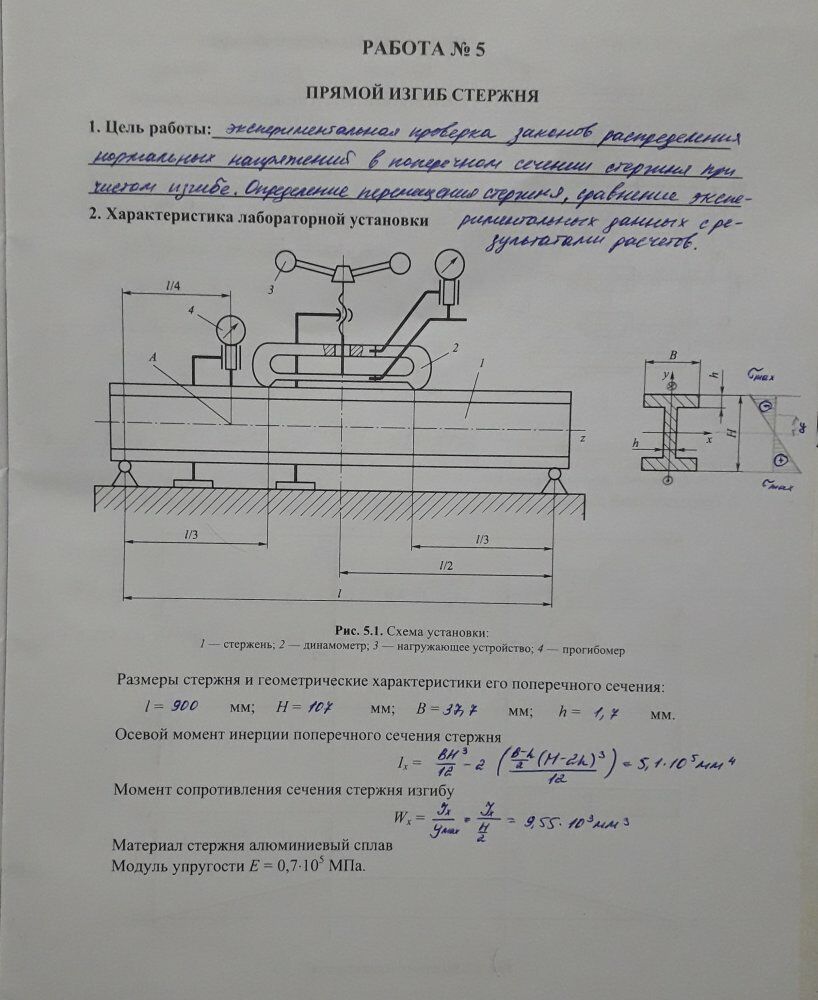 РАБОТА № 5
ПРЯМОЙ ИЗГИБ СТЕРЖНЯ
1. Цель работы: экспериментальная проверка законов распределения
нормальных напряжений в поперечном сечении стержня при
чистом изгибе. Определение перемещения стержня, сравнение экспе-
2. Характеристика лабораторной установки риментальных данных с ре-
зультатами расчетов.
l/4
3
4
A
2
1
z
l/3
l/3
l/2
l
B
y
h
H
h
x
σmax
σmax
y
Рис. 5.1. Схема установки:
1 — стержень; 2 — динамометр; 3 — нагружающее устройство; 4 — прогибомер
Размеры стержня и геометрические характеристики его поперечного сечения:
l = 900 мм; H = 107 мм; B = 37,7 мм; h = 1,7 мм.
Осевой момент инерции поперечного сечения стержня
Iₓ = BH³/12 − 2 (B−h/2 (H−2h)³/12) = 5,1·10⁵ мм⁴
Момент сопротивления сечения стержня изгибу
Wₓ = Jₓ/yₘₐₓ = Jₓ/(H/2) = 9,55·10³ мм³
Материал стержня алюминиевый сплав
Модуль упругости E = 0,7·10⁵ МПа.